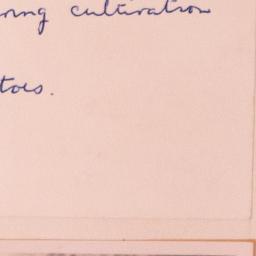 ring cultivation
toes.